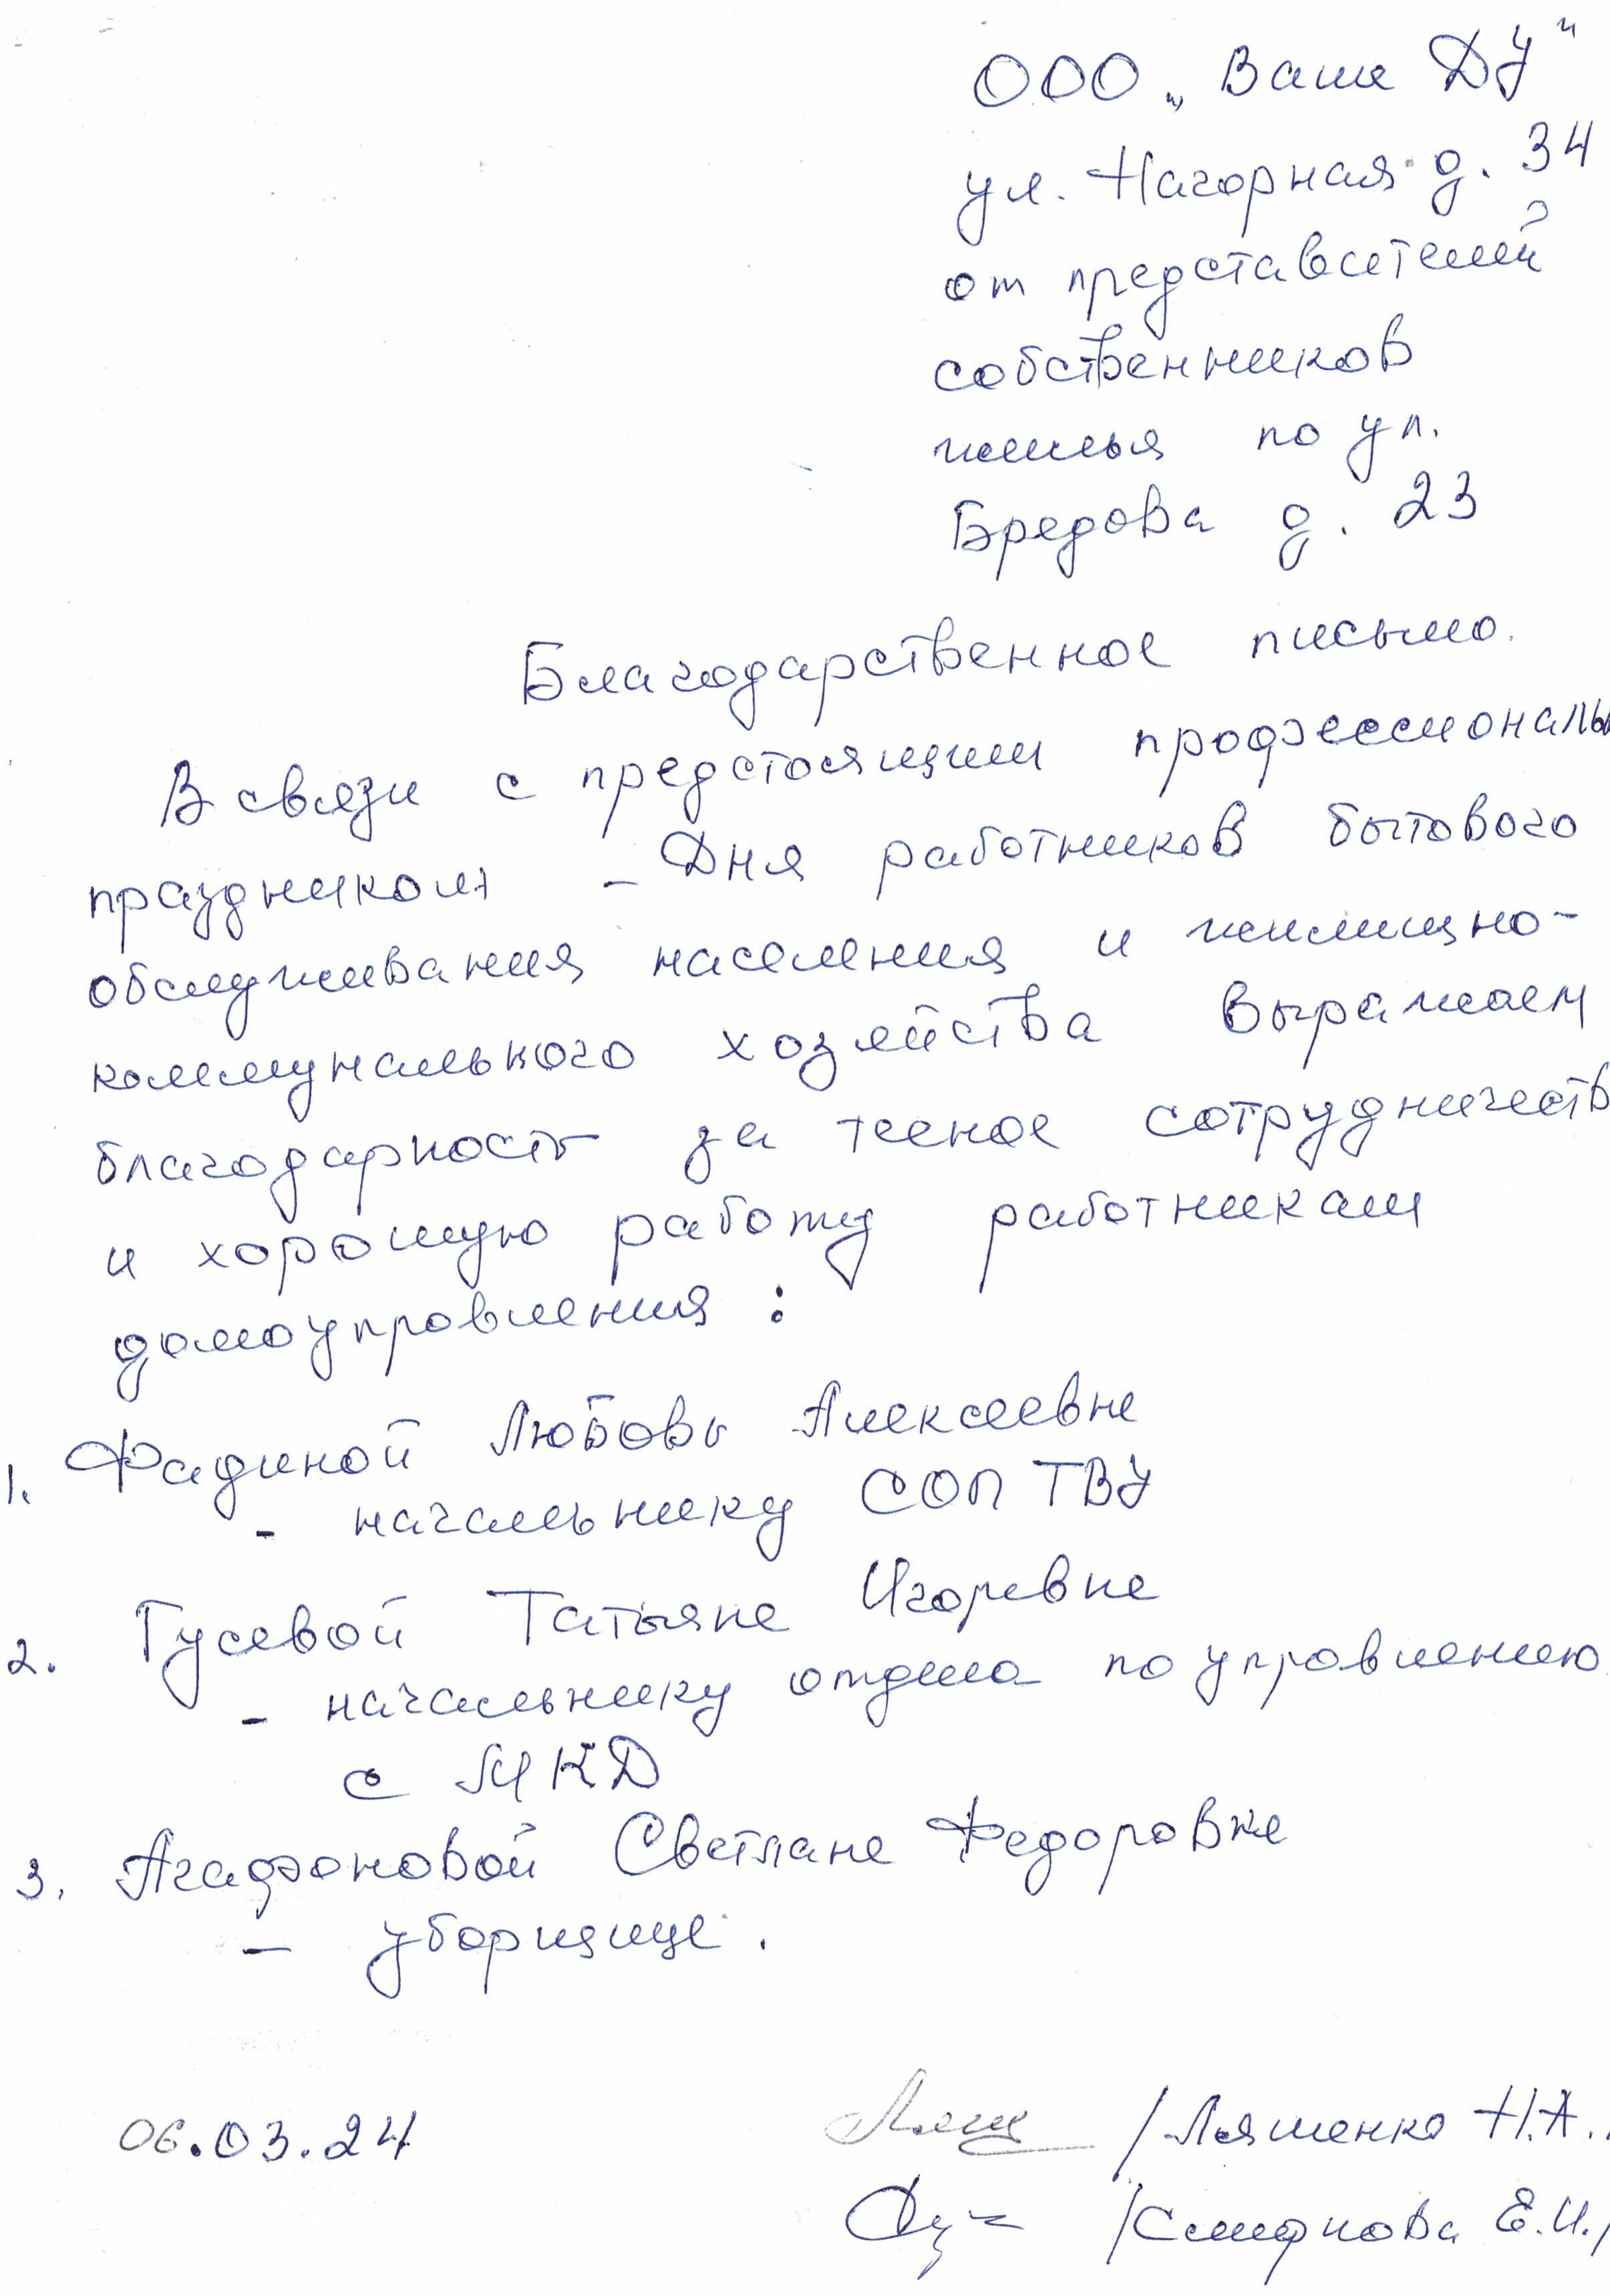 ООО „Ваше ДУ"
ул. Нагорная д. 34
от представителей
собственников
жилья по ул.
Бредова д. 23
Благодарственное письмо.
В связи с предстоящим профессиональ
праздником - Дня работников бытового
обслуживания населения и жилищно-
коммунального хозяйства выражаем
благодарность за тесное сотрудничеств
и хорошую работу работникам
домоуправления :
1. Фадиной Любовь Алексеевне
- начальнику СОП ТВУ
2. Гусевой Татьяне Игоревне
- начальнику отдела по управлению
с МКД
3. Агафоновой Светлане Федоровне
- уборщице .
06.03.24 /Ляшенко Н.А.
/Смирнова Е.И./